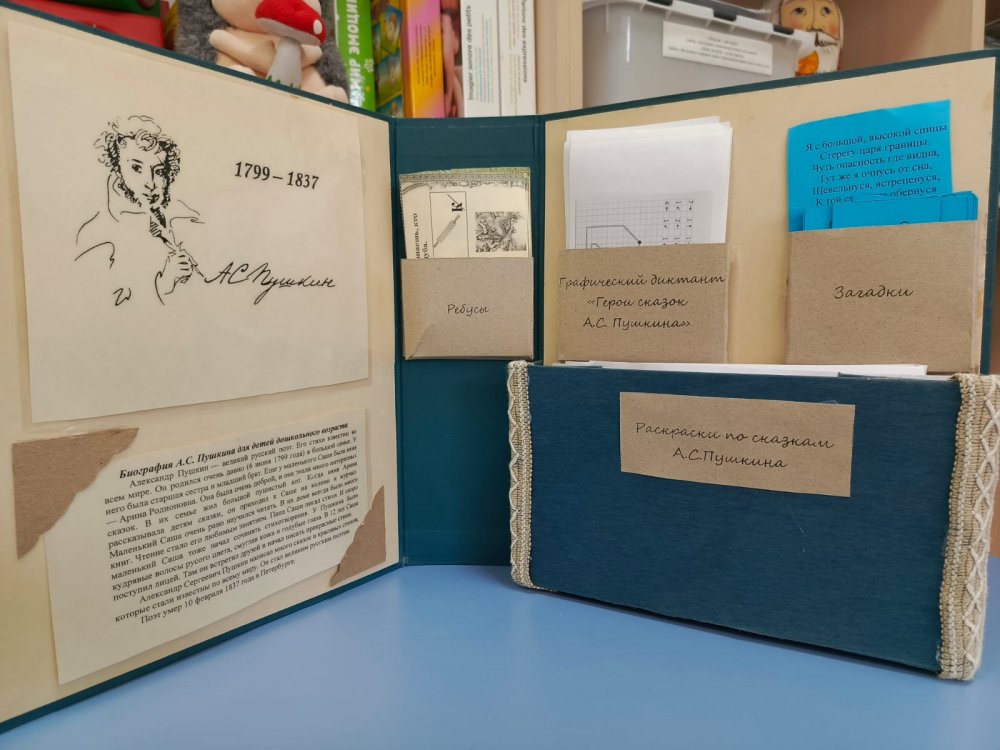 МИР ЭМОЦИЙ
Imagier sonore des petits
1799 – 1837
А С Пушкин
Биография А.С. Пушкина для детей дошкольного возраста
Александр Пушкин — великий русский поэт. Его стихи известны во
всем мире. Он родился очень давно (6 июня 1799 года) в большой семье. У
него была старшая сестра и младший брат. Еще у маленького Саши была няня
— Арина Родионовна. Она была очень доброй, и она знала много интересных
сказок. В их семье жил большой пушистый кот. Когда няня Арина
рассказывала детям сказки, он приходил к Саше на колени и мурчал.
Маленький Саша очень рано научился читать. В их доме всегда было много
книг. Чтение стало его любимым занятием. Папа Саши писал стихи. И скоро
маленький Саша тоже начал сочинять стихотворения. У Пушкина были
кудрявые волосы русого цвета, смуглая кожа и голубые глаза. В 12 лет Саша
поступил лицей. Там он встретил друзей и начал писать прекрасные стихи,
которые стали известны по всему миру. Он стал великим русским поэтом.
Александр Сергеевич Пушкин написал много сказок и красивых стихов,
Поэт умер 10 февраля 1837 года в Петербурге.
К
Ребусы
Графический диктант
«Герои сказок
А.С. Пушкина»
Я с большой, высокой спицы
Стерегу царя границы.
Чуть опасность где видна,
Тут же я очнусь от сна,
Шевельнуся, встрепенуся,
К той обернуся
Загадки
Раскраски по сказкам
А.С.Пушкина